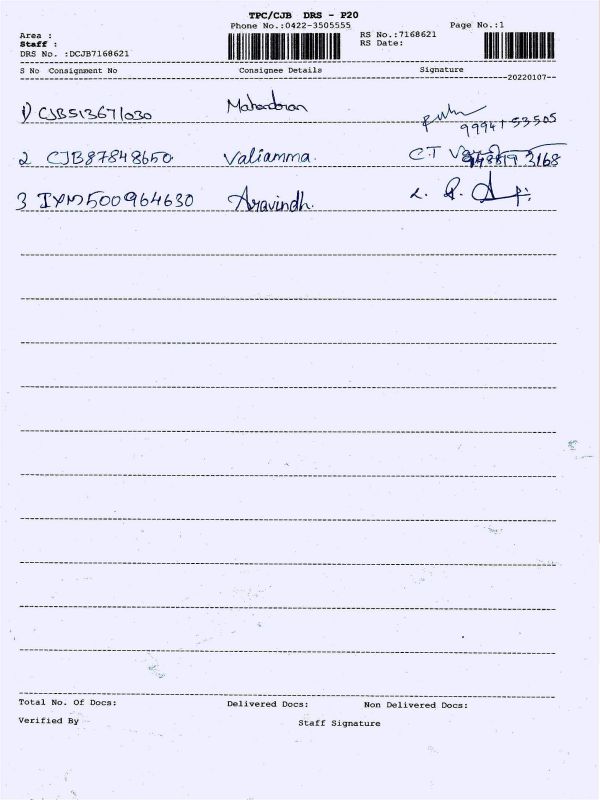 TPC/CJB DRS - P20
Phone No.:0422-3505555
Page No.:1
Area :
Staff :
DRS No. :DCJB7168621
RS No.:7168621
RS Date:
S No Consignment No Consignee Details Signature
20220107
1) CJB513671030
9994153505
2 CJB87848650 Valiamma.
C.T
3 IXM500964630 Aravindh.
Total No. Of Docs: Delivered Docs: Non Delivered Docs:
Verified By Staff Signature